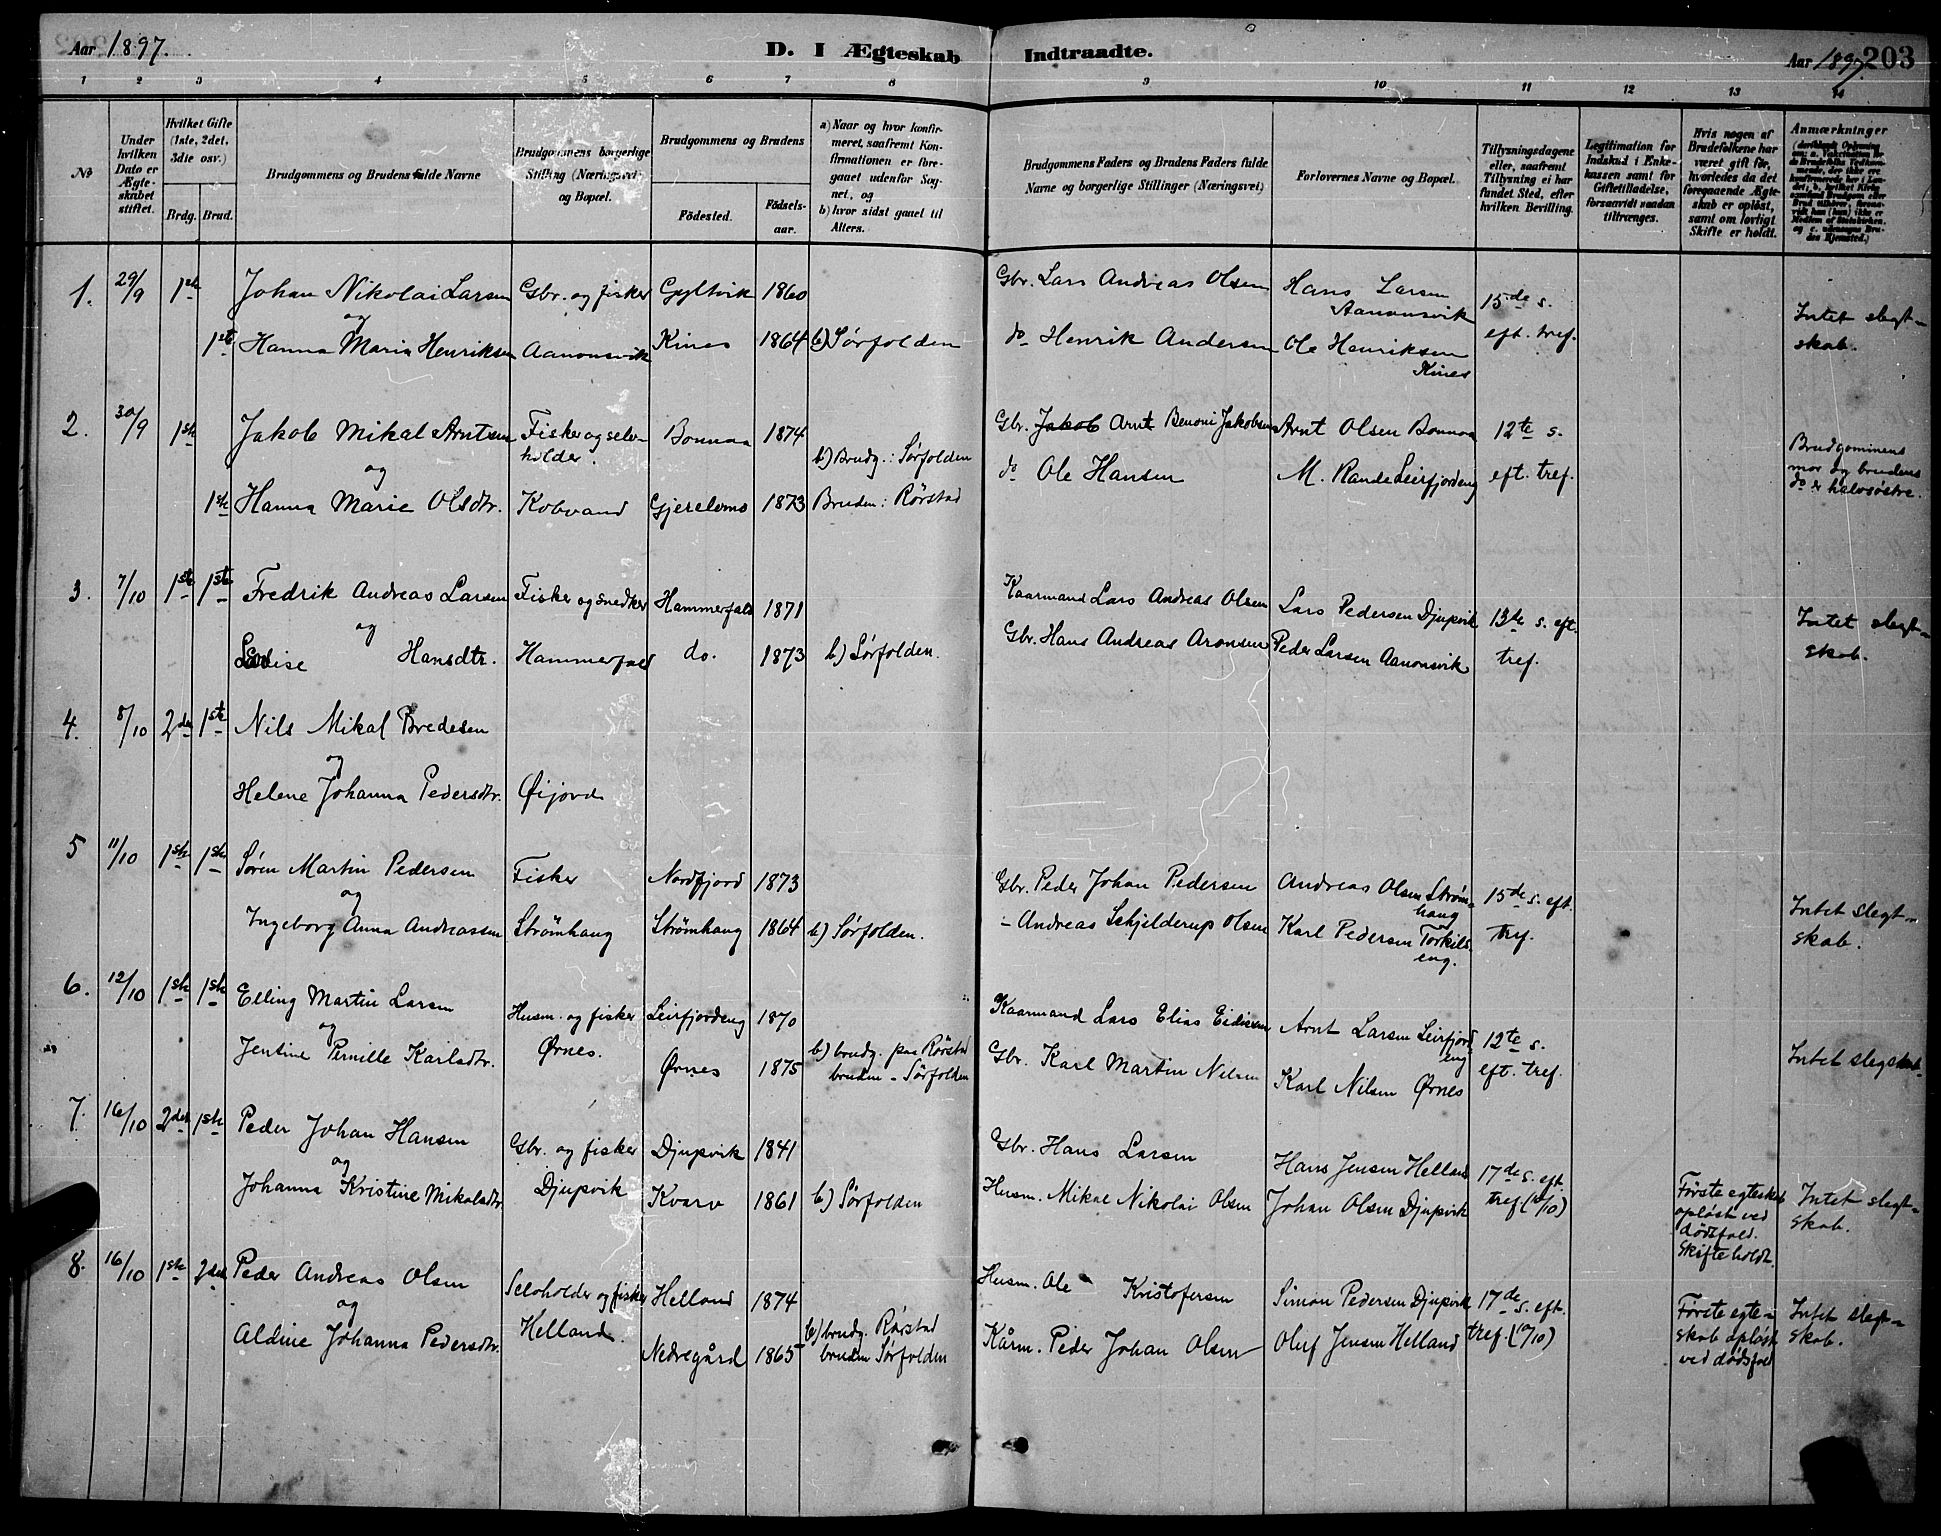 Aar 1897.
D. I Ægteskab Indtraadte.
Aar 1897. 203
1 2 3 4 5 6 7 8 9 10 11 12 13 14
No
Under hvilken Dato er Ægteskabet stiftet.
Hvilket Gifte (1ste, 2det, 3die osv.)
Brdg. Brud.
Brudgommens og Brudens fulde Navne
Brudgommens borgerlige Stilling (Næringsvei) og Bopæl.
Brudgommens og Brudens
Fødested.
Fødselsaar.
a) Naar og hvor konfirmeret, saafremt Konfirmationen er foregaaet udenfor Sognet, og
b) hvor sidst gaaet til Alters.
Brudgommens Faders og Brudens Faders fulde Navne og borgerlige Stillinger (Næringsvei)
Forlovernes Navne og Bopæl.
Tillysningsdagene eller, saafremt Tillysning ei har fundet Sted, efter hvilken Bevilling.
Legitimation for Indskud i Enkekassen samt for Giftetilladelse, forsaavidt saadan tiltrænges.
Hvis nogen af Brudefolkene har været gift før, hvorledes da det foregaaende Ægteskab er opløst, samt om lovligt Skifte er holdt.
Anmærkninger
1. 29/9 1ste Johan Nikolai Larsen Gbr. og fisker Gyltvik 1860 Gbr. Lars Andreas Olsen Hans Larsen Aanonsvik 15de s.
og
1ste Hanna Maria Henriksen Aanonsvik Kines 1864 b) Sørfolden do Henrik Andersen Ole Henriksen Kines eft. tref. Intet slegtskab.
2. 30/9 1ste Jakob Mikal Arntsen Fisker og selvholder. Bonnaa 1874 b) Brudg.: Sørfolden Gbr. Jakob Arnt Benoni Jakobsen Arnt Olsen Bonnaa 12te s.
og
1ste Hanna Marie Olsdtr. Kobvand Gjerelvmo 1873 Bruden: Rørstad do Ole Hansen M. Rande Leirfjordeng eft. tref. Brudgommens mor og brudens do er halvsøstre.
3. 7/10 1ste 1ste Fredrik Andreas Larsen Fisker og snedker Hammerfald 1871 Kaarmand Lars Andreas Olsen Lars Pedersen Djupvik 13de s. eft.
og
Lovise Hansdtr. Hammerfald do. 1873 b) Sørfolden. Gbr. Hans Andreas Aronsen Peder Larsen Aanonsvik tref. Intet slegtskab.
4. 8/10 2det 1ste Nils Mikal Bredesen
og
Helene Johanna Pedersdtr. Øijord
5 11/10 1ste 1ste Søren Martin Pedersen Fisker Nordfjord 1873 Gbr. Peder Johan Pedersen Andreas Olsen Strømhaug 15de s. eft.
og
Ingeborg Anna Andreassen Strømhaug Strømhaug 1864 b) Sørfolden. - Andreas Schjelderup Olsen Karl Pedersen Torkilseng. tref. Intet slegtskab.
6. 12/10 1ste 1ste Elling Martin Larsen Husm. og fisker Leirfjordeng 1870 Kaarmand Lars Elias Eidissen Arnt Larsen Leirfjordeng 12te s.
og
Jentine Pernille Karlsdtr. Ørnes. Ørnes 1875 b) brudg. paa Rørstad bruden - Sørfolden Gbr. Karl Martin Nilsen Karl Nilsen Ørnes eft. tref. Intet slegtskab.
7. 16/10 2det 1ste Peder Johan Hansen Gbr. og fisker Djupvik 1841 Gbr. Hans Larsen Hans Jensen Helland 17de s. eft.
og
Johanna Kristine Mikalsdtr. Djupvik Kvarv 1861 b) Sørfolden Husm. Mikal Nikolai Olsen Johan Olsen Djupvik tref (10/10) Første egteskab opløst ved dødsfald. Skifte holdt. Intet slegtskab.
8. 16/10 1ste 2det Peder Andreas Olsen Selvholder og fisker Helland 1874 Husm. Ole Kristofersen Simon Pedersen Djupvik 17de s. eft.
og
Aldine Johanna Pedersdtr. Helland. Nedregård 1865 b) brudg. Rørstad bruden Sørfolden Kårm. Peder Johan Olsen Oluf Jensen Helland tref. (10/10) Første egteskab opløst ved dødsfald Intet slegtskab.